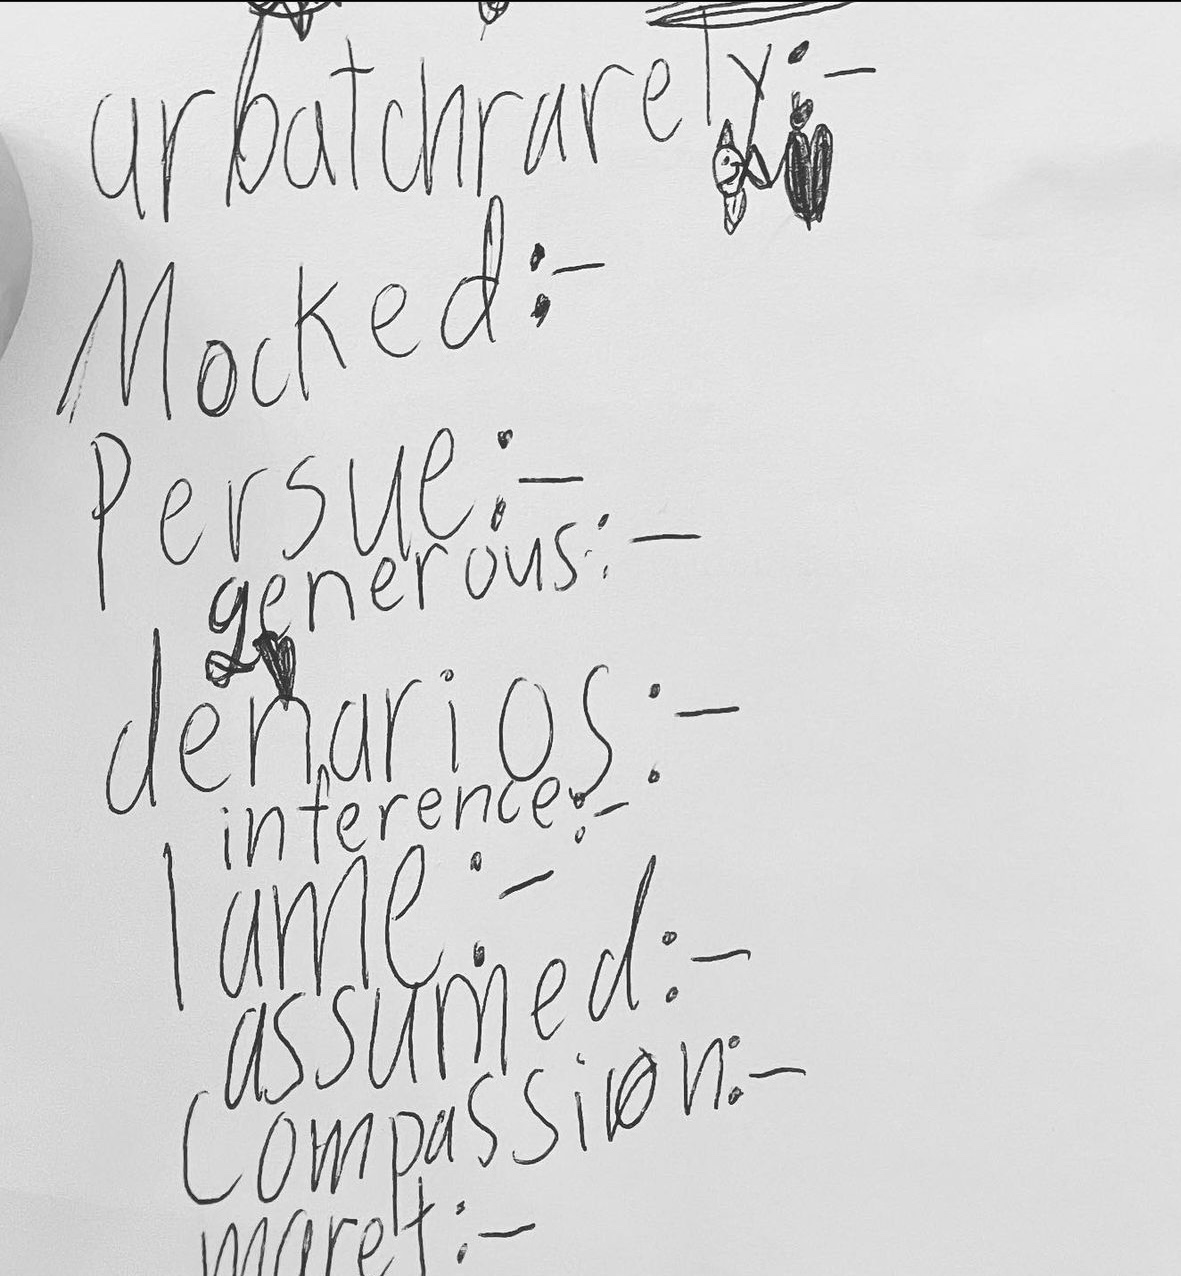 arbatchrarely:-
Mocked:-
Persue:-
generous:-
denarios:-
inference:-
lame:-
assumed:-
Compassion:-
maret:-